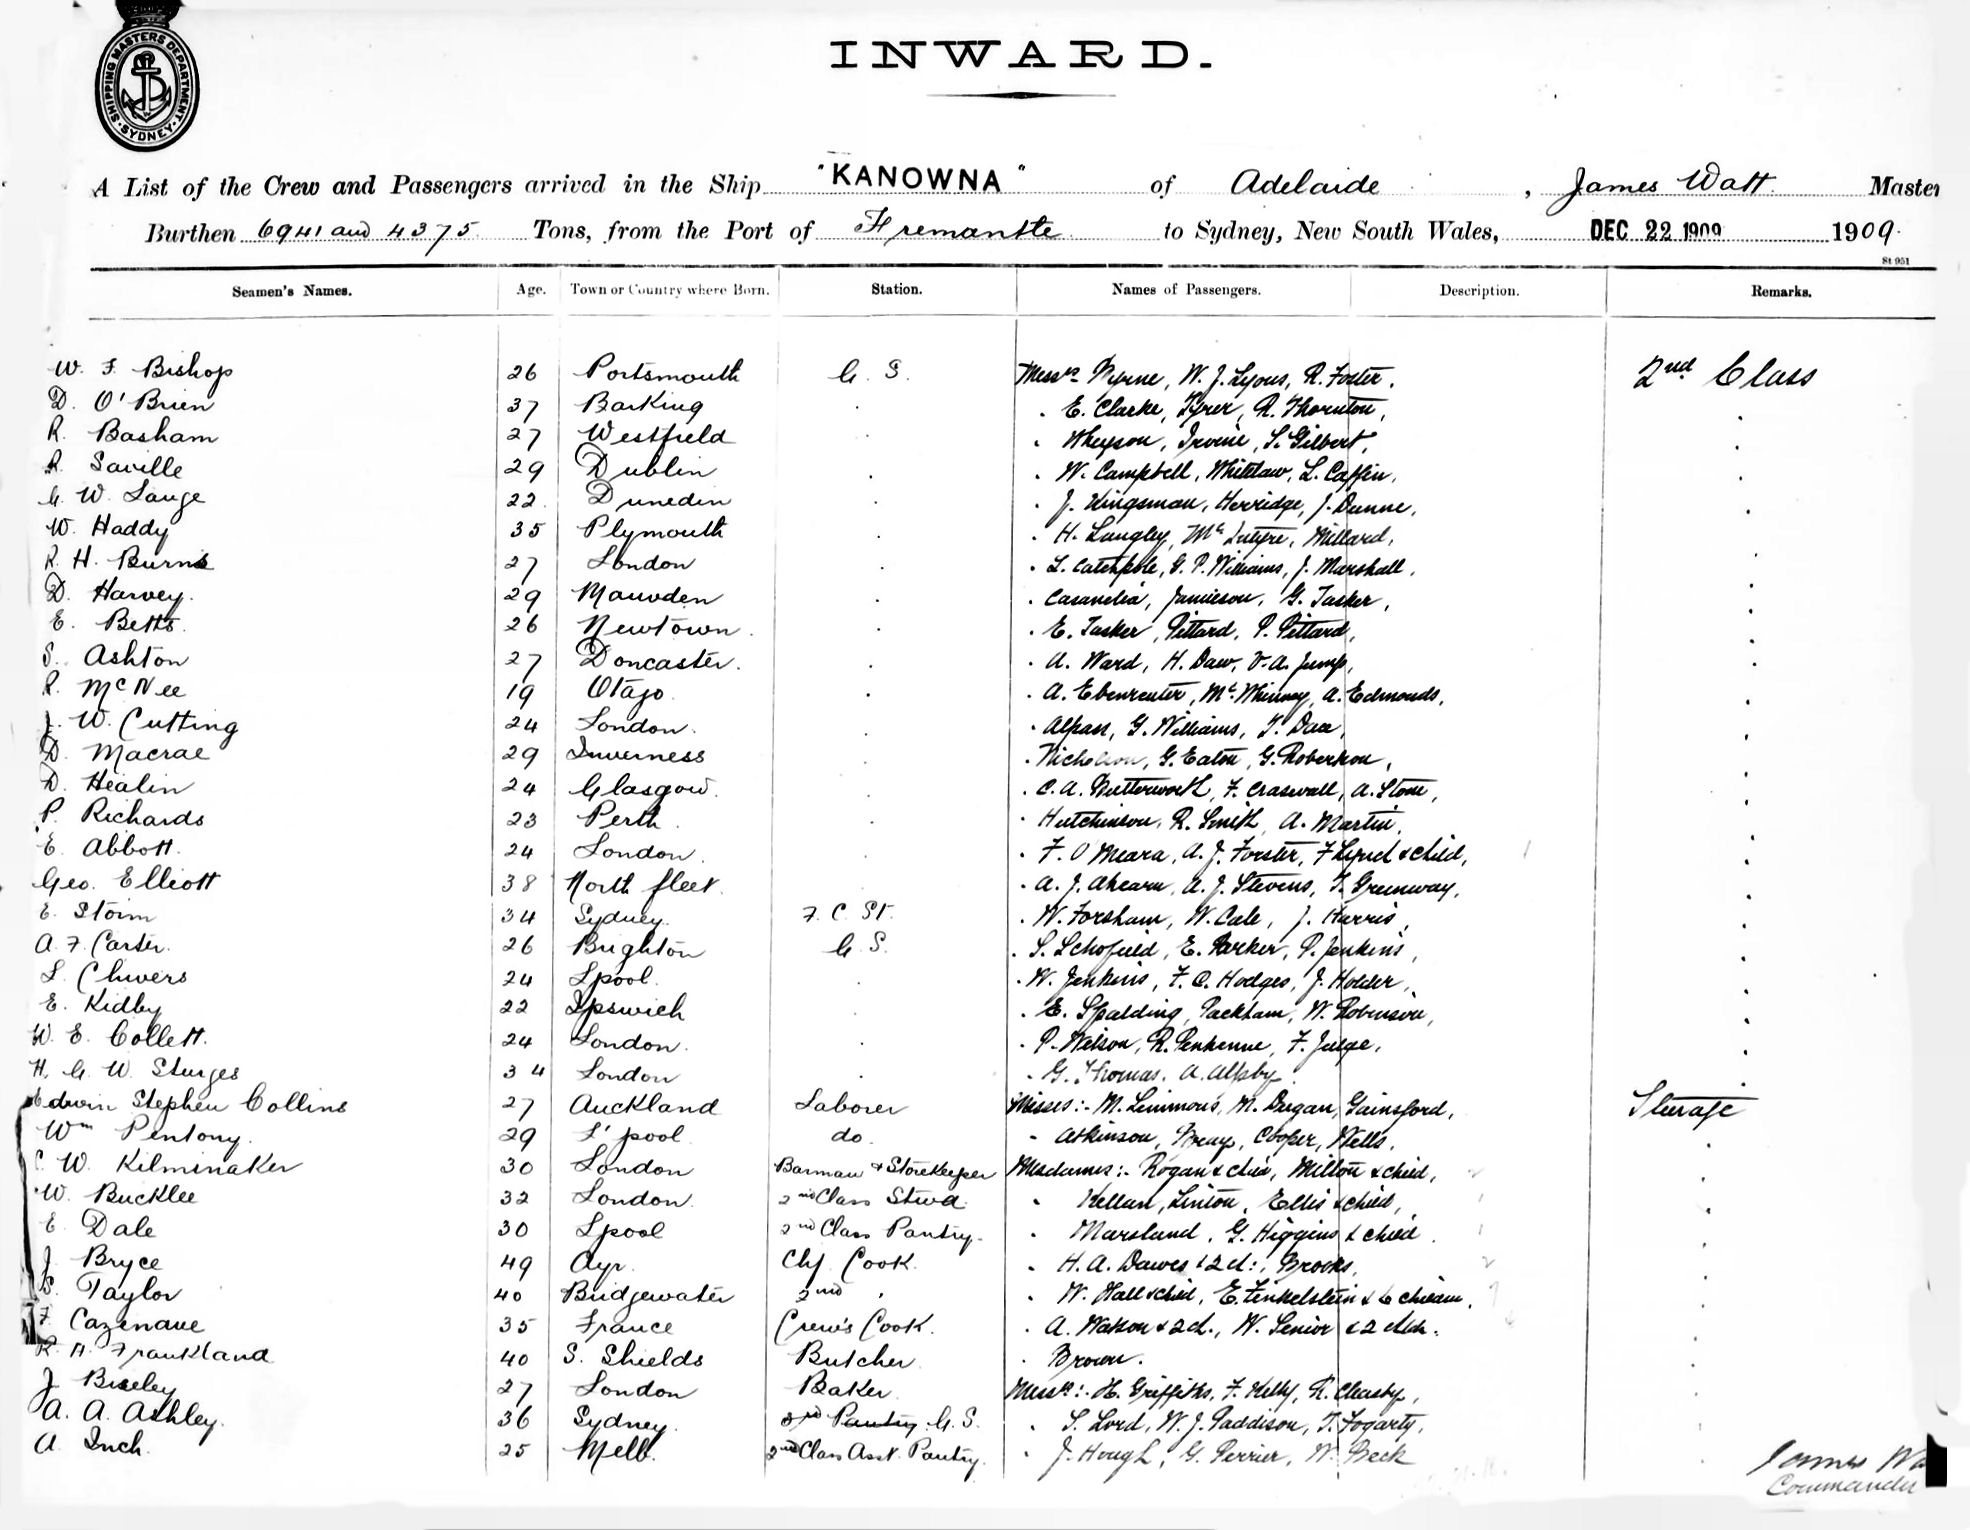 SHIPPING MASTERS DEPARTMENT
SYDNEY
INWARD.
A List of the Crew and Passengers arrived in the Ship "KANOWNA" of Adelaide, James Watt Master
Burthen 6941 and 4375 Tons, from the Port of Fremantle to Sydney, New South Wales, DEC 22 1909 1909.
St 951
Seamen's Names. Age. Town or Country where Born. Station. Names of Passengers. Description. Remarks.
W. F. Bishop 26 Portsmouth G. S. Messrs Byrne, W. J. Lyons, R. Foster, 2nd Class
D. O'Brien 37 Barking E. Clarke, Tyrer, R. Thornton,
R. Basham 27 Westfield Irvine, S. Gilbert,
R. Saville 29 Dublin W. Campbell, Whitelaw, L. Caffin,
G. W. Lange 22 Dunedin J. Kingsman, Herridge, J. Dunne,
W. Haddy 35 Plymouth H. Langley, McIntyre, Millard,
R. H. Burns 27 London L. Catchpole, G. P. Williams, J. Marshall,
D. Harvey. 29 Manuden Jamieson, G. Tasker,
E. Betts. 26 Newtown E. Tasker, Pittard, P. Pittard,
S. Ashton 27 Doncaster. A. Ward, H. Daw, V. A. Jump,
R. McNee 19 Otago A. Ebenreuter, McWhinney, A. Edmonds,
J. W. Cutting 24 London. Alpass, G. Williams, T. Dax,
D. Macrae 29 Inverness Nicholson, G. Eaton, G. Robertson,
D. Healin 24 Glasgow. C. A. Butterworth, F. Craswall, A. Stone,
P. Richards 23 Perth Hutchinson, R. Smith, A. Martin,
E. Abbott. 24 London. F. O'Meara, A. J. Forster, F Lynch & child,
Geo. Elliott 38 North fleet. A. J. Ahearn, A. J. Stevens, T. Greenway,
E. Storm 34 Sydney. F. C. St. W. Forsham, W. Cale, J. Harris,
A. F. Carter. 26 Brighton G. S. S. Schofield, E. Parker, P. Jenkins,
L. Chivers 24 Lpool. W. Jenkins, F. C. Hodges, J. Holder,
E. Kidby 22 Ipswich E. Spalding, Packham, W. Robinson,
W. E. Collett. 24 London. P. Watson, R. Penkenne, F. Judge,
H. G. W. Sturges 34 London G. Thomas. A. Allsby.
Edwin Stephen Collins 27 Auckland Laborer Misses:- M. Simmons, M. Durgan, Gainsford, Sterage
Wm Pentony. 29 L'pool do. Atkinson, Bray, Cooper, Wells,
C. W. Kilminaker 30 London Barman & Storekeeper Mesdames:- Rogan & child, Milton & child,
W. Bucklee 32 London. 2nd Class Stwd. Kellan, Linton, Ellis & child,
E. Dale 30 Lpool 2nd Class Pantry. Marsland, G. Higgins & child.
J. Bryce 49 Ayr. Chf. Cook. H. A. Dawes & 2 ch:, Brooks,
S. Taylor 40 Bridgewater 2nd " W. Hall & child, E. Finkelstein & 6 children,
F. Cazenave 35 France Crew's Cook. A. Watson & 2 ch., W. Senior & 2 chldn.
R. A. Frankland 40 S. Shields Butcher Brown.
J. Biseley 27 London Baker. Messrs:- H. Griffiths, F. Kelly, R. Cleasby,
A. A. Ashley. 36 Sydney. 3rd Pantry G. S. S. Lord, W. J. Paddison, T. Fogarty,
A. Inch. 25 Melb. 2nd Class Asst. Pantry. J. Hough, G. Perrier, W. Beck
James Wa
Commander